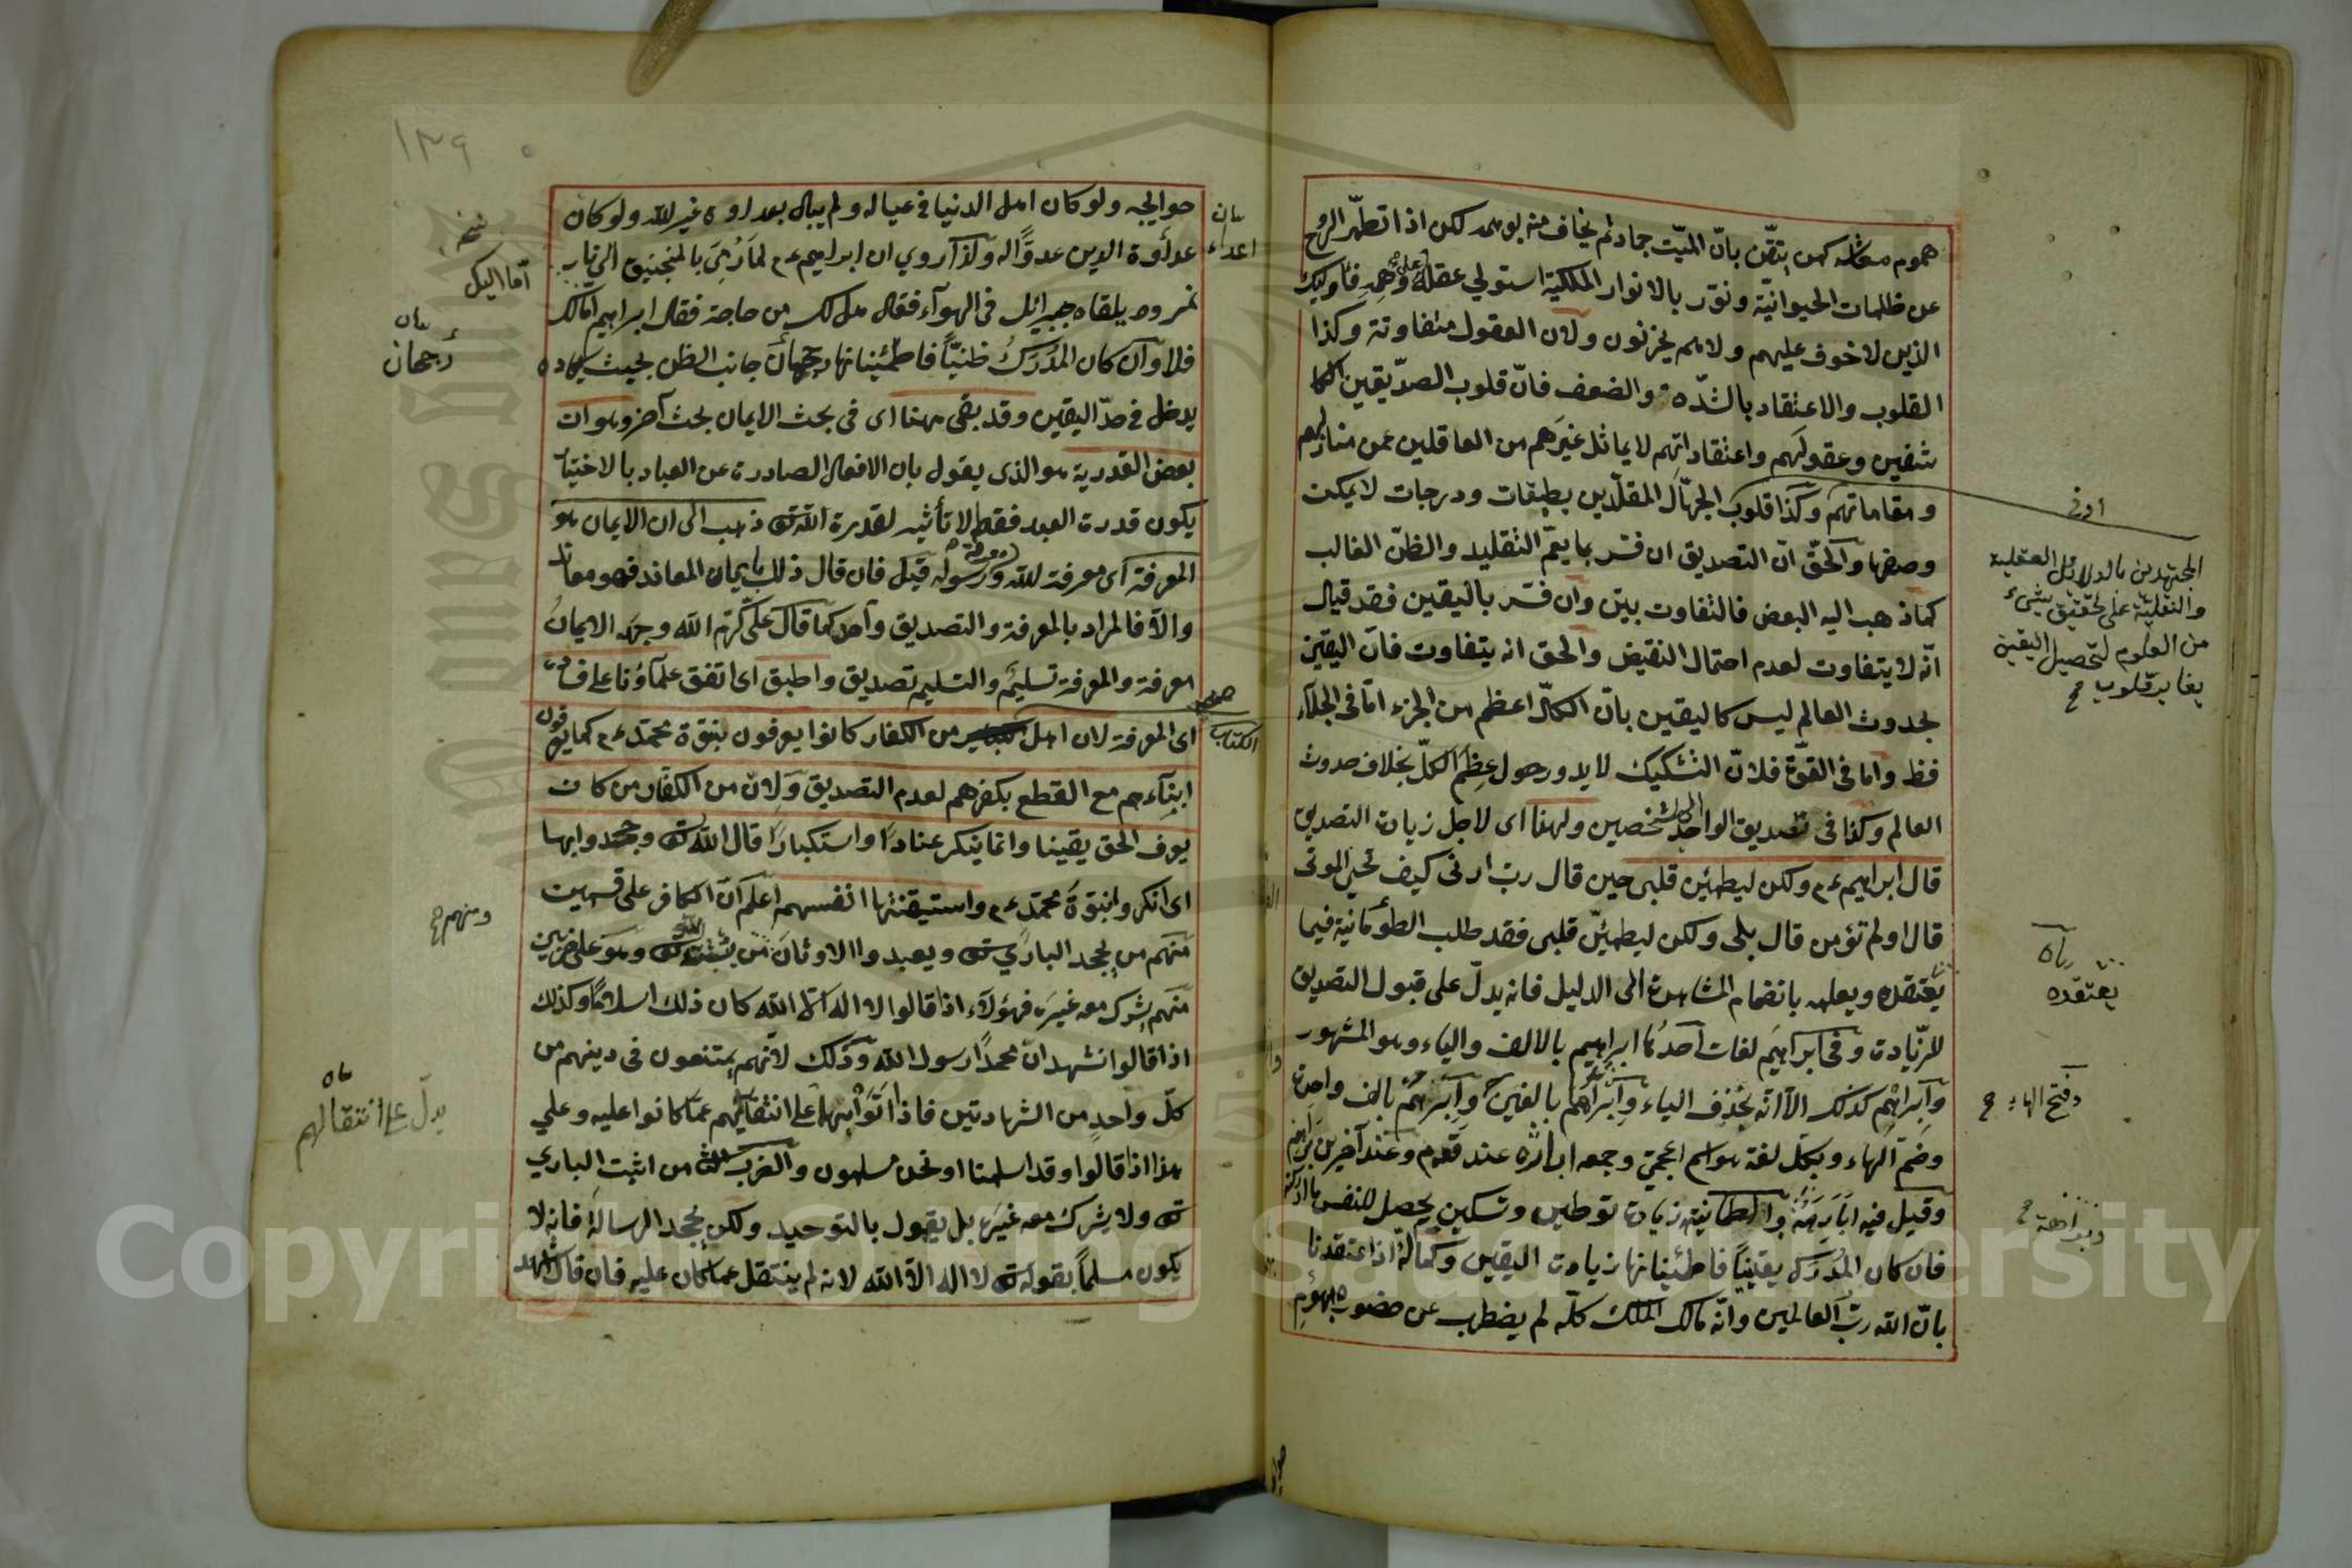 هموم معاشه كمن يتقّن بانّ الميّت جماد ثم يخاف منه بوهمه لكن اذا تطهّر الروح
عن ظلمات الحيوانيّة ونوّر بالانوار الملكيّة استولى عقله على وهمه فاولئك
الذين لا خوف عليهم ولا هم يحزنون ولان العقول متفاوتة وكذا
القلوب والاعتقاد بالشدّة والضعف فانّ قلوب الصدّيقين المكا
شفين وعقولهم واعتقاداتهم لا يماثل غيرهم من العاقلين عن منازلهم
ومقاماتهم وكذا قلوب الجهّال المقلّدين بطبقات ودرجات لا يمكن
وصفها والحقّ انّ التصديق ان فسّر بما يعمّ التقليد والظنّ الغالب
كما ذهب اليه البعض فالتفاوت بيّن وان فسّر باليقين فقد قيل
انّه لا يتفاوت لعدم احتمال النقيض والحق انه يتفاوت فانّ اليقين
بحدوث العالم ليس كاليقين بانّ الكلّ اعظم من الجزء امّا في الجلاء
فظ واما في القوّة فلانّ التشكيك لا يدور حول عظم الكلّ بخلاف حدوث
العالم وكذا في تصديق الواحد شخصين ولهذا اى لاجل زيادة التصديق
قال ابراهيم ع م ولكن ليطمئن قلبى حين قال ربّ ارنى كيف تحيى الموتى
قال اولم تؤمن قال بلى ولكن ليطمئنّ قلبى فقد طلب الطمأنية فيما
يعتقده ويعلمه بانضمام المشاهدة الى الدليل فانه يدلّ على قبول التصديق
للزيادة وفى ابراهيم لغات احدها ابراهيم بالالف والياء وهو المشهور
وابراهم كذلك الّا انّه بحذف الياء وابراهم بالفين وابرهم بالف واحدة
وضمّ الهاء وبكلّ لغة هو اسم اعجمىّ وجمعه اباره عند قوم وعند آخرين براهم
وقيل فيه ابارهة والطمانية زيادة توطين وتسكين يحصل للنفس ما ادركته
فان كان المدرك يقينيّا فاطمئنانها زيادة اليقين وكماله اذا اعتقدنا
بانّ الله ربّ العالمين وانّه مالك الملك كلّه لم يضطرب عن حضور هموم
ادنى
المجتهدين بالدلائل العقلية
والنقليّة على تحقيق شىء
من العلوم لتحصيل اليقين
يغاير قلوب
يعتقده
وفتح الهاء
١٣٩
حوايجه ولو كان اهل الدنيا في عياله ولم يبال بعداوة غير الله ولو كان
عداوة الدين عدوّا له ولذا روي ان ابراهيم ع م لما رمي بالمنجنيق الى نار
نمرود يلقاه جبرائيل فى الهوآء فقال هل لك من حاجة فقال ابراهيم امّا لك
فلا وان كان المدرك ظنيّا فاطمئنانها رجحان جانب الظن بحيث يكاده
يدخل في حدّ اليقين وقد بقى ههنا اى فى بحث الايمان بحث آخر وهو ان
بعض القدرية هو الذى يقول بان الافعال الصادرة عن العباد بالاختيار
يكون قدرة العبد فقط لا تأثير لقدرة الله تع ذهب الى ان الايمان هو
المعرفة اى معرفة لله ورسوله قيل فان قال ذلك بايمان المعاند فهو معاند
والّا فالمراد بالمعرفة والتصديق واحد كما قال علىّ كرّم الله وجهه الايمان
معرفة والمعرفة تسليم والتسليم تصديق واطبق اى اتفق علماؤنا على فساده
اى المعرفة لان اهل من الكفار كانوا يعرفون بنبوّة محمّد ع م كما يعرفون
ابنآءهم مع القطع بكفرهم لعدم التصديق ولانّ من الكفار من كان
يعرف الحق يقينا وانما ينكر عنادا واستكبارا قال الله تع وجحدوا بها
اى انكروا بنبوّة محمّد ع م واستيقنتها انفسهم اعلم انّ الكافر على قسمين
منهم من يجحد الباري تع ويعبدوا الاوثان من يثبت الله تع وهو على ضربين
منهم يشرك معه غيره فهؤلآء اذا قالوا لا اله الّا الله كان ذلك اسلاما وكذلك
اذا قالوا نشهد انّ محمدا رسول الله وذلك لانّهم يمتنعون فى دينهم من
كلّ واحد من الشهادتين فاذا اتوا بها على انتقالهم عمّا كانوا عليه وعلي
هذا اذا قالوا وقد اسلمنا او نحن مسلمون والضرب الثانى من اثبت الباري
تع ولا يشرك معه غيره بل يقول بالتوحيد ولكن يجحد الرسالة فانه لا
يكون مسلما بقوله تع لا اله الّا الله لانه لم ينتقل عمّا كان عليه فان قال اشهد
بيان
اعداء
نسخه
امّا اليك
بيان
رجحان
صح
الكتاب
ومنهم
يدلّ على انتقالهم